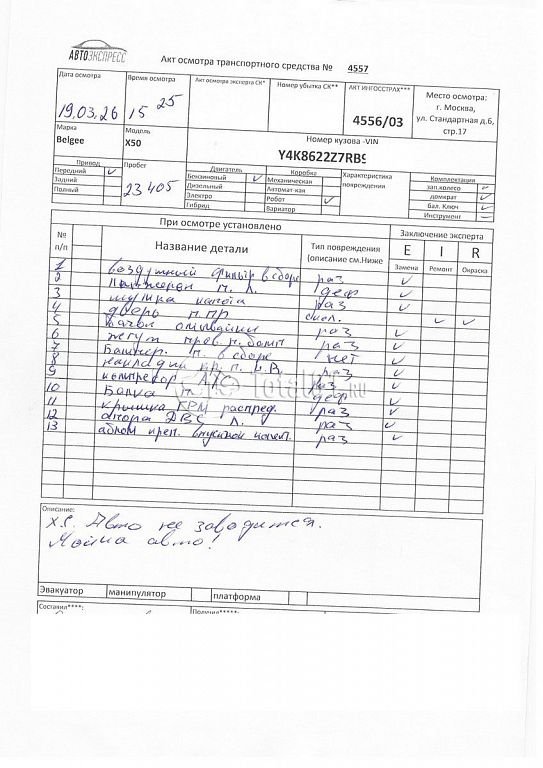 АВТОЭКСПРЕСС
Акт осмотра транспортного средства № 4557
Дата осмотра
19.03.26
Время осмотра
15 25
Акт осмотра эксперта СК*
Номер убытка СК**
АКТ ИНГОССТРАХ***
4556/03
Место осмотра:
г. Москва,
ул. Стандартная д.6,
стр.17
Марка
Belgee
Модель
X50
Номер кузова -VIN
Y4K8622Z7RB9
Привод
Передний ✓
Задний
Полный
Пробег
23405
Двигатель
Бензиновый ✓
Дизельный
Электро
Гибрид
Коробка
Механическая
Автомат-кая
Робот ✓
Вариатор
Характеристика
повреждения
Комплектация
зап.колесо ✓
домкрат ✓
бал. Ключ ✓
Инструмент –
При осмотре установлено
Заключение эксперта
№ п/п
Название детали
Тип повреждения
(описание см.Ниже
E I R
Замена Ремонт Окраска
1 воздушный фильтр в сборе раз ✓
2 п. л. деф ✓
3 капота раз ✓
4 дверь п.пр скол. ✓ ✓
5 бачок омывайки раз ✓
6 жгут раз ✓
7 Бампер. п. в сборе нет ✓
8 раз ✓
9 раз ✓
10 Балка п. деф ✓
11 крышка ГРМ распред. раз ✓
12 опора ДВС л. раз ✓
13 впускной раз ✓
Описание:
Х.З. Авто не заводится.
Мойка авто!
Эвакуатор манипулятор платформа
Составил****: Получил****: